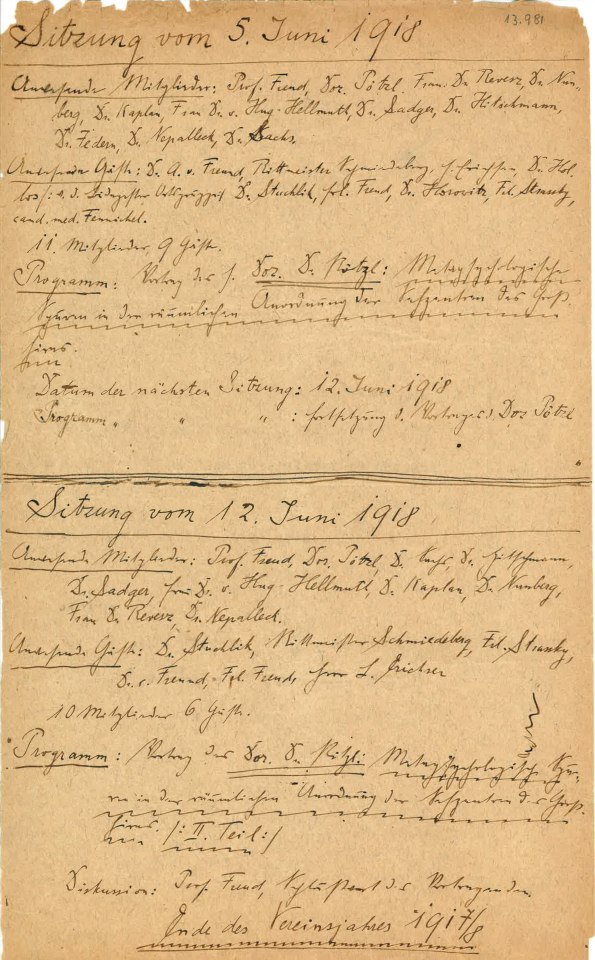 13.981
Sitzung vom 5. Juni 1918
Anwesende Mitglieder: Prof. Freud, Doz. Pötzl, Frau Dr. Revesz, Dr. Nun-
berg, Dr. Kaplan, Frau Dr. v. Hug-Hellmuth, Dr. Sadger, Dr. Hitschmann,
Dr. Federn, Dr. Nepalleck, Dr. Sachs.
Anwesende Gäste: Dr. A. v. Freund, Rittmeister Schmiedeberg, Dr. Hol-
los /: v. d. Budapester Ortsgruppe :/ Dr. Stuchlik, Frl. Freud, Dr. Horovitz, Frl. Stransky,
cand. med. Fennichel.
11 Mitglieder, 9 Gäste.
Programm: Vortrag des H. Doz. Dr. Pötzl: Metapsychologische
Spuren in der räumlichen Anordnung der Sehzentren des Groß-
hirns.
Datum der nächsten Sitzung: 12. Juni 1918
Programm " " " : Fortsetzung d. Vortrages v. Doz Pötzl
Sitzung vom 12. Juni 1918
Anwesende Mitglieder: Prof. Freud, Doz. Pötzl, Dr. Sachs, Dr. Hitschmann,
Dr. Sadger, Frau Dr. v. Hug-Hellmuth, Dr. Kaplan, Dr. Nunberg,
Frau Dr. Revesz, Dr. Nepalleck.
Anwesende Gäste: Dr. Stuchlik, Rittmeister Schmiedeberg, Frl. Stransky,
Dr. v. Freund, Frl. Freud, Herr L.
10 Mitglieder 6 Gäste.
Programm: Vortrag des Doz. Dr. Pötzl: Metapsychologische Spu-
ren in der räumlichen Anordnung der Sehzentren des Groß-
hirns. /: II. Teil :/
Diskussion: Prof. Freud, Schlußwort des Vortragenden.
Ende des Vereinsjahres 1917/8